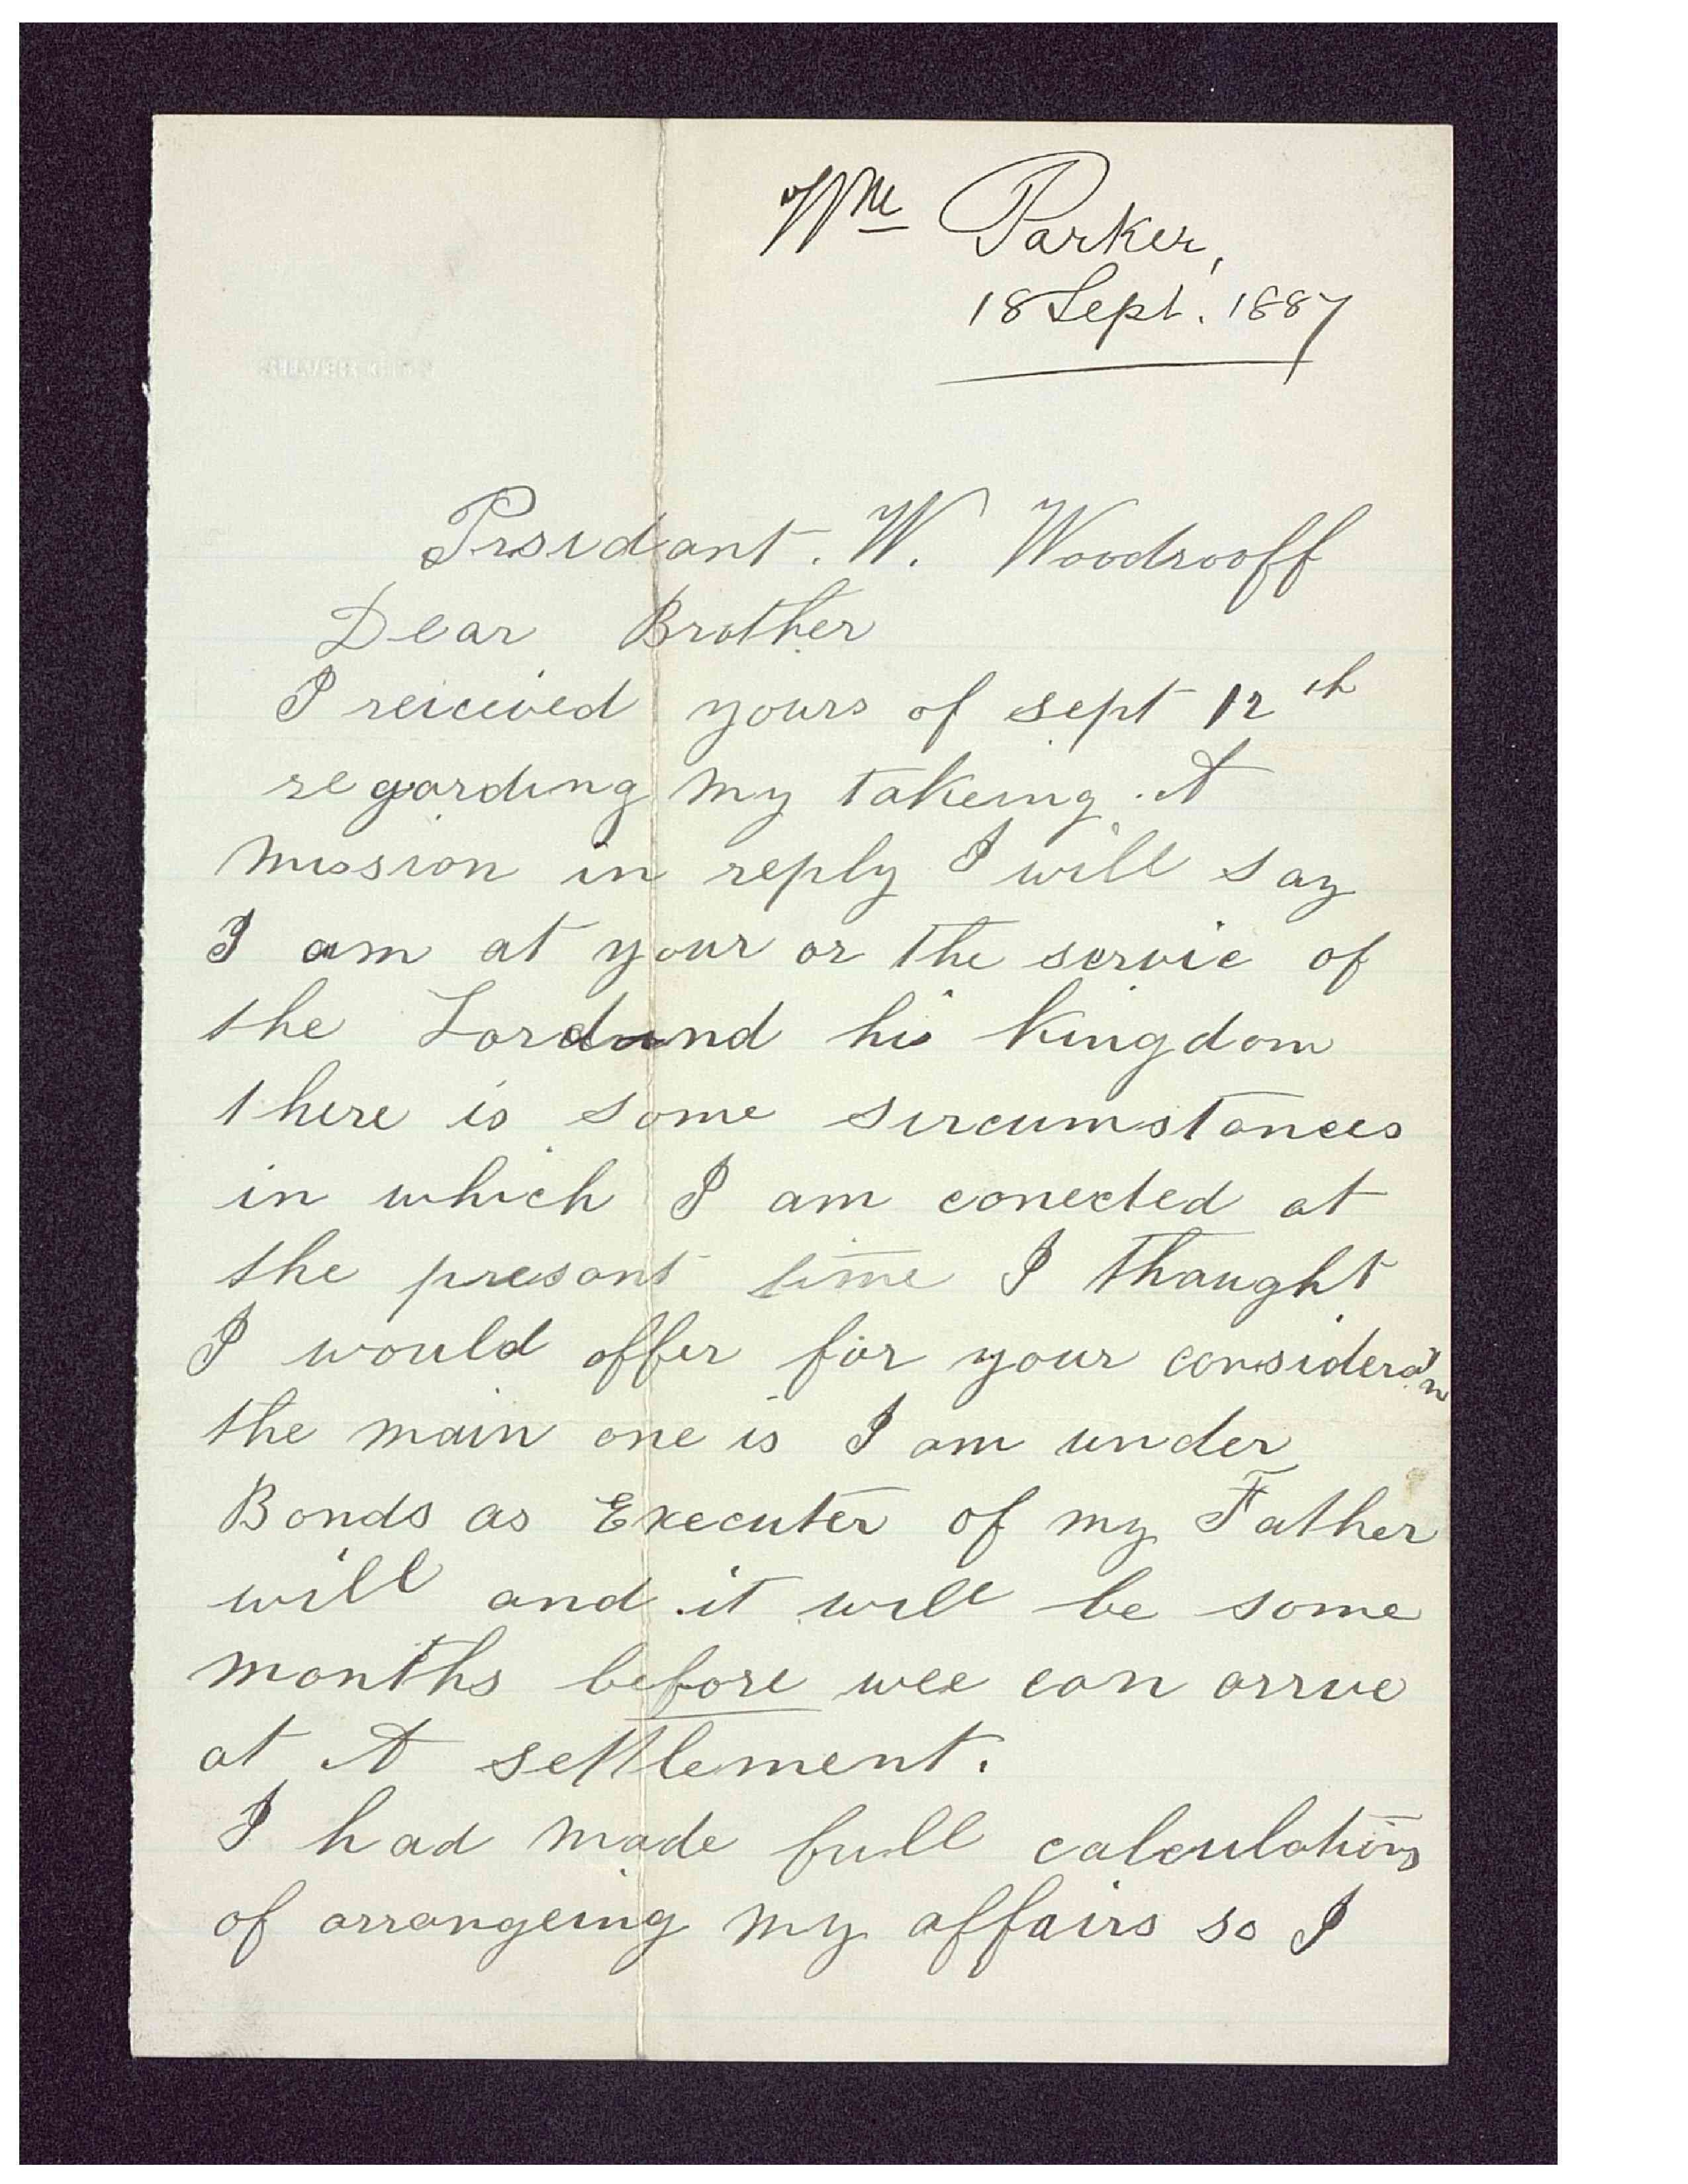 Wm Parker,
18 Sept. 1887
Prsidant. W. Woodrooff
Dear Brother
I reiceived yours of sept 12th
regarding my takeing A
mission in reply I will say
I am at your or the servic of
the Lord and his Kingdom
there is some sircumstances
in which I am conected at
the presant time I thaught
I would offer for your consideran
the main one is I am under
Bonds as Executer of my Father
will and it will be some
months before wee can arrive
at A settlement.
I had made full calculations
of arrangeing my affairs so I